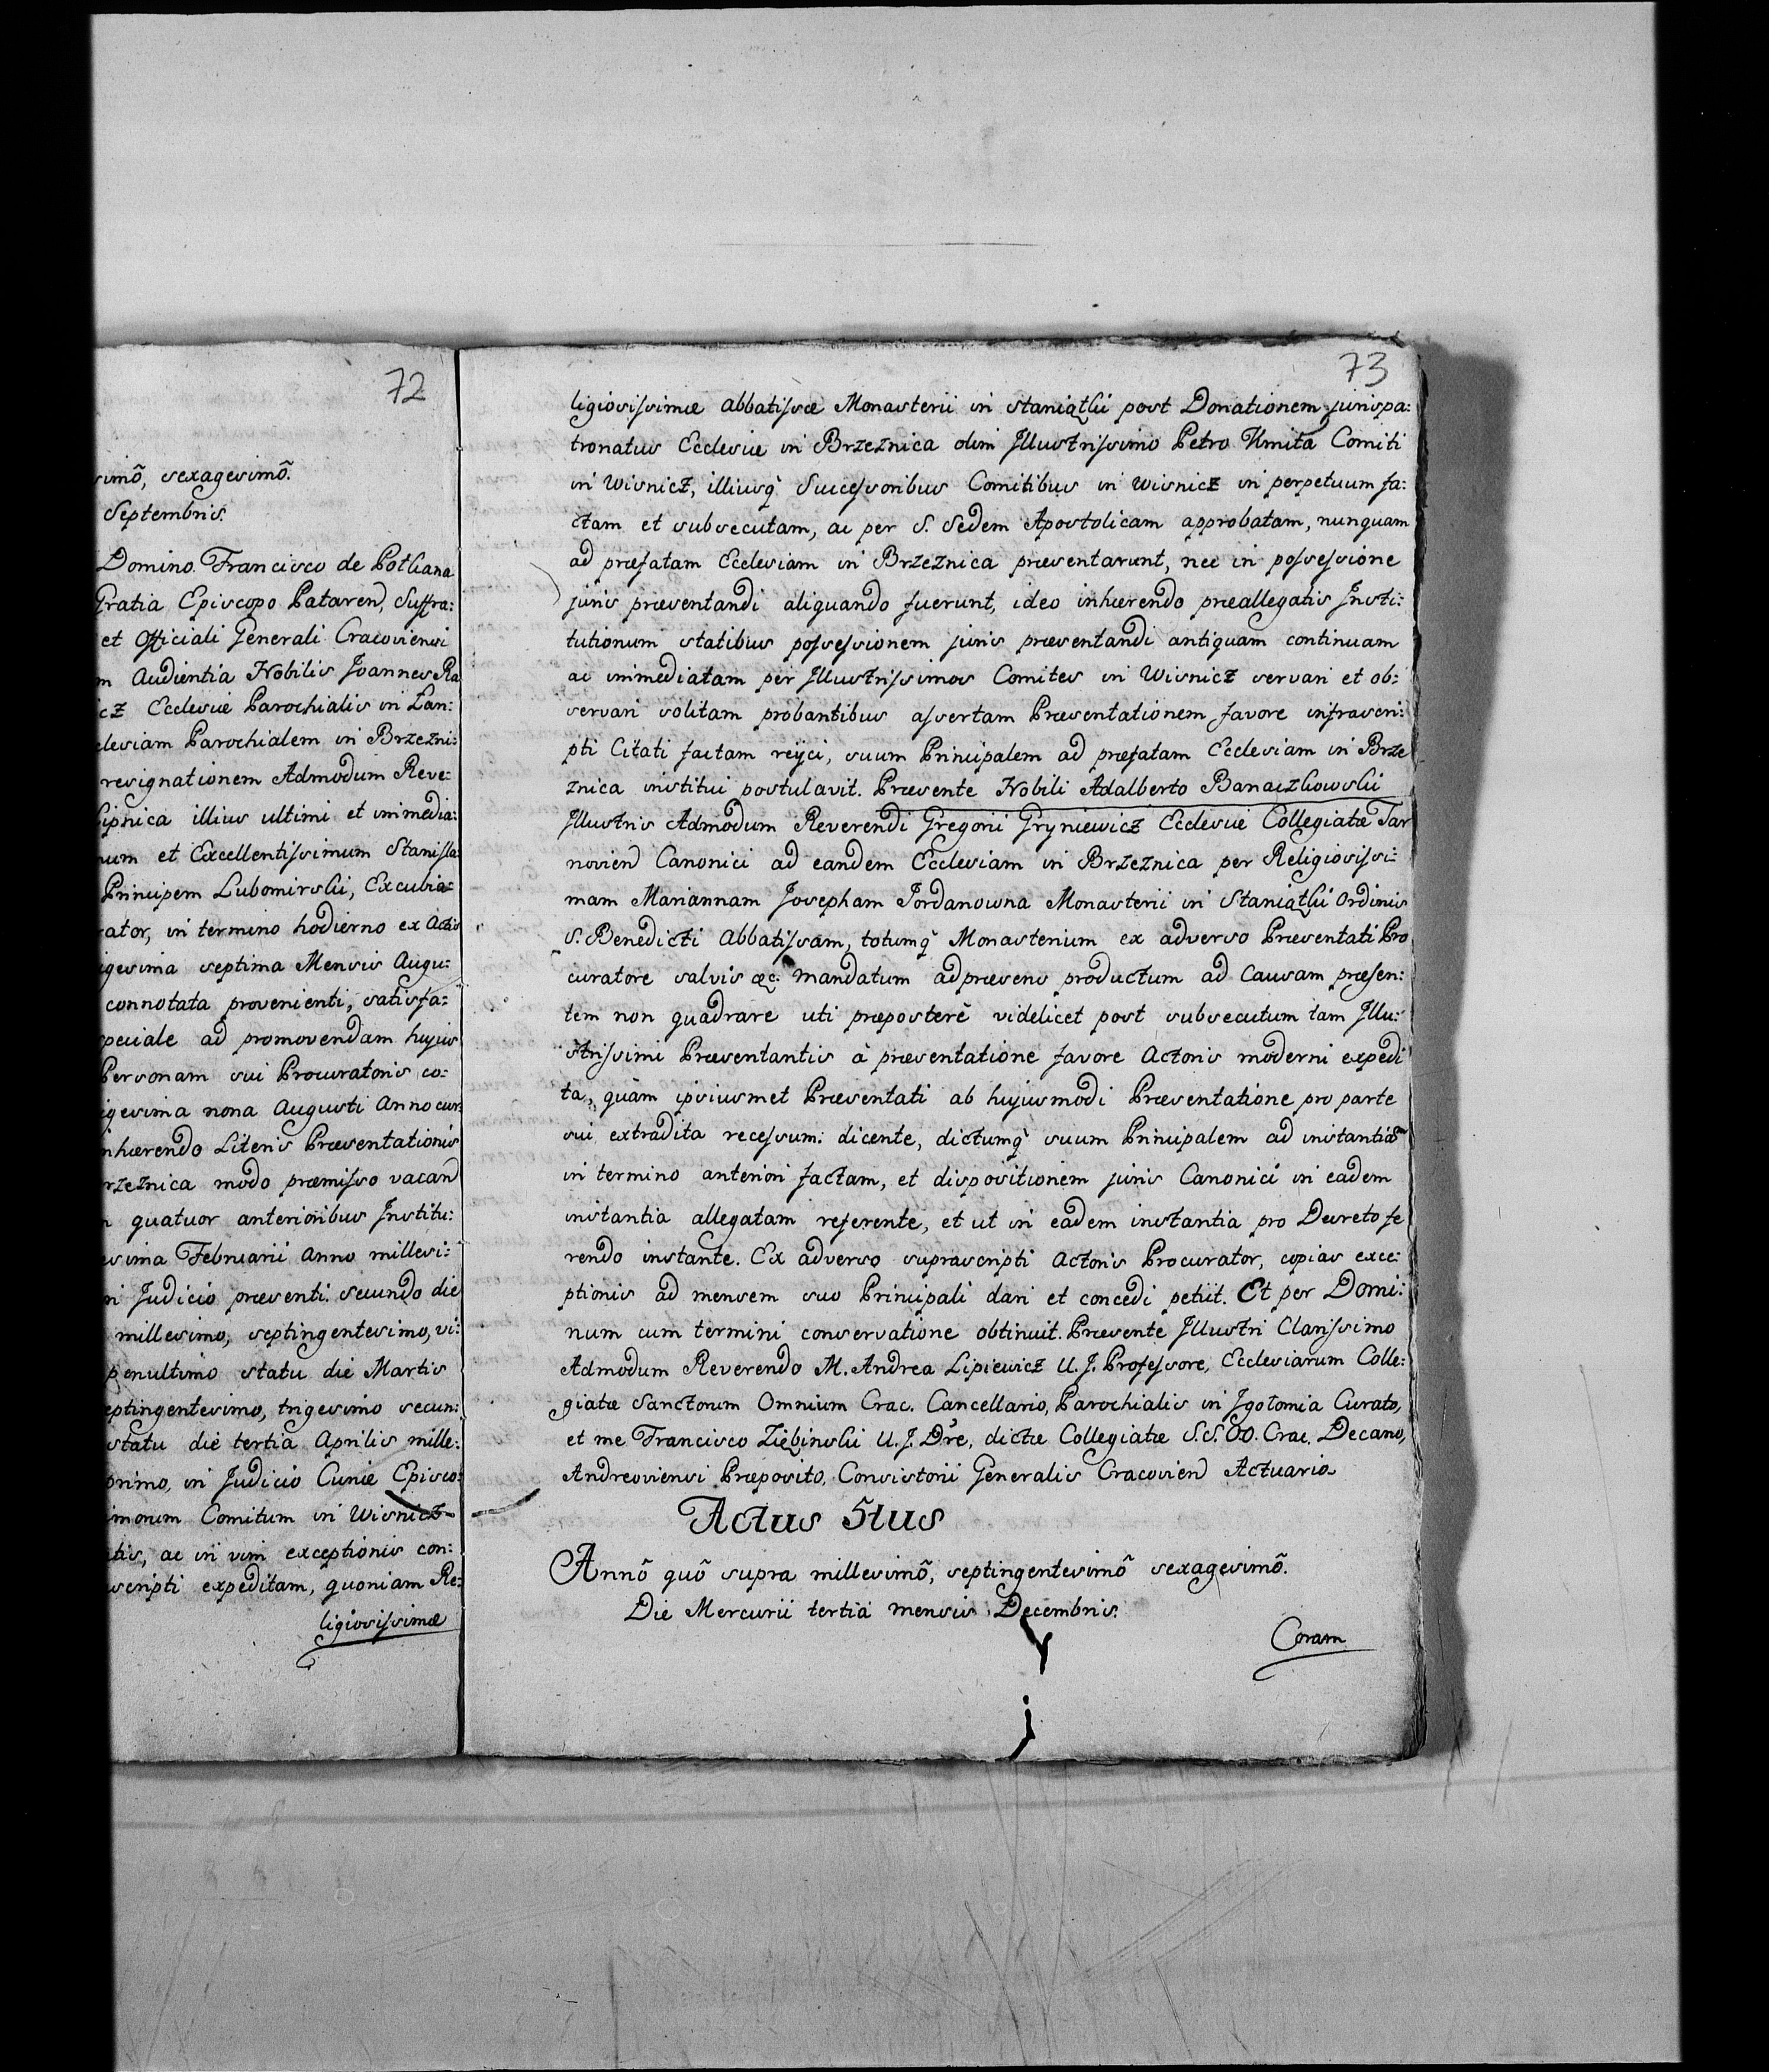 72
simõ, sexagesimõ.
Septembris.
Domino Francisco de Potkana
Gratia Episcopo Pataren, Suffra:
et Officiali Generali Cracoviensi
m Audientia Nobilis Joannes Ra
cz Ecclesiæ Parochialis in Lan:
clesiam Parochialem in Brzezni:
resignationem Admodum Reve:
Lipnica illius ultimi et immedia:
num et Excellentissimum Stanisla:
Principem Lubomirski, Excubia:
rator, in termino hodierno ex Actis
igesima septima Mensis Augu:
connotata provenienti, satisfa:
peciale ad promovendam hujus
Personam sui Procuratoris co:
igesima nona Augusti Anno cur:
nhærendo Literis Præsentationis
rzeznica modo præmisso vacan
n quatuor anterioribus Institu:
esima Februarii Anno millesi:
n Judicio præsenti. secundo die
millesimo, septingentesimo, vi:
penultimo statu die Martis
eptingentesimo, trigesimo secun:
statu die tertia Aprilis mille:
primo, in Judicio Curiæ Episco:
imorum Comitum in Wisnicz
tis, ac in vim exceptionis con:
scripti expeditam, quoniam Re:
ligiosissimæ
73
ligiosissimæ Abbatissæ Monasterii in Staniątki post Donationem jurispa:
tronatus Ecclesiæ in Brzeznica olim Illustrissimo Petro Kmita Comiti
in Wisnicz, illiusq̀ Successoribus Comitibus in Wisnicz in perpetuum fa:
ctam et subsecutam, ac per S. Sedem Apostolicam approbatam, nunquam
ad præfatam Ecclesiam in Brzeznica præsentarunt, nec in possessione
juris præsentandi aliquando fuerunt, ideo inhærendo præallegatis Insti:
tutionum statibus possessionem juris præsentandi antiquam continuam
ac immediatam per Illustrissimos Comites in Wisnicz servari et ob:
servari solitam probantibus assertam Præsentationem favore infrascri:
pti Citati factam rejici, suum Principalem ad præfatam Ecclesiam in Brze
znica institui postulavit. Præsente Nobili Adalberto Banaszkowski
Illustris Admodum Reverendi Gregorii Gryniewicz Ecclesiæ Collegiatæ Tar
novien Canonici ad eandem Ecclesiam in Brzeznica per Religiosissi:
mam Mariannam Josepham Jordanowna Monasterii in Staniątki Ordinis
S. Benedicti Abbatissam, totumq̀ Monasterium ex adverso Præsentati Pro
curatore salvis &c: mandatum ad præsens productum ad Causam præsen:
tem non quadrare uti præposterè videlicet post subsecutum tam Illu:
strissimi Præsentantis à præsentatione favore Actoris moderni expedi
ta, quàm ipsiusmet Præsentati ab hujusmodi Præsentatione pro parte
sui extradita recessum: dicente, dictumq̀ suum Principalem ad instantiã
in termino anteriori factam, et dispositionem juris Canonici in eadem
instantia allegatam referente, et ut in eadem instantia pro Decreto fe
rendo instante. Ex adverso suprascripti Actoris Procurator, copias exce:
ptionis ad mensem suo Principali dari et concedi petiit. Et per Domi:
num cum termini conservatione obtinuit. Præsente Illustri Clarissimo
Admodum Reverendo M. Andrea Lipiewicz U. J. Professore, Ecclesiarum Colle:
giatæ Sanctorum Omnium Crac. Cancellario, Parochialis in Jgołomia Curato,
et me Francisco Ziębinski U. J. Dre, dictæ Collegiatæ S.S. OO. Crac. Decano,
Andreoviensi Præposito, Consistorii Generalis Cracovien Actuario.
Actus 5tus
Annõ quõ supra millesimõ, septingentesimõ sexagesimõ.
Die Mercurii tertia mensis Decembris.
Coram